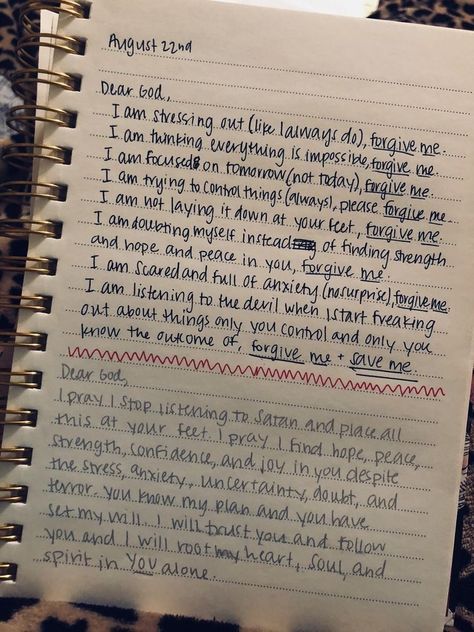 August 22nd
Dear God,
I am stressing out (like I always do), forgive me.
I am thinking everything is impossible, forgive me.
I am focused on tomorrow (not today), forgive me.
I am trying to control things (always), please forgive me.
I am not laying it down at your feet, forgive me.
I am doubting myself instead of finding strength
and hope and peace in you, forgive me.
I am scared and full of anxiety (no surprise), forgive me.
I am listening to the devil when I start freaking
out about things only you control and only you
know the outcome of, forgive me + save me.
Dear God,
I pray I stop listening to Satan and place all
this at your feet. I pray I find hope, peace,
strength, confidence, and joy in you despite
the stress, anxiety, uncertainty, doubt, and
terror. You know my plan and you have
set my will. I will trust you and follow
you and I will root my heart, soul, and
spirit in you alone.